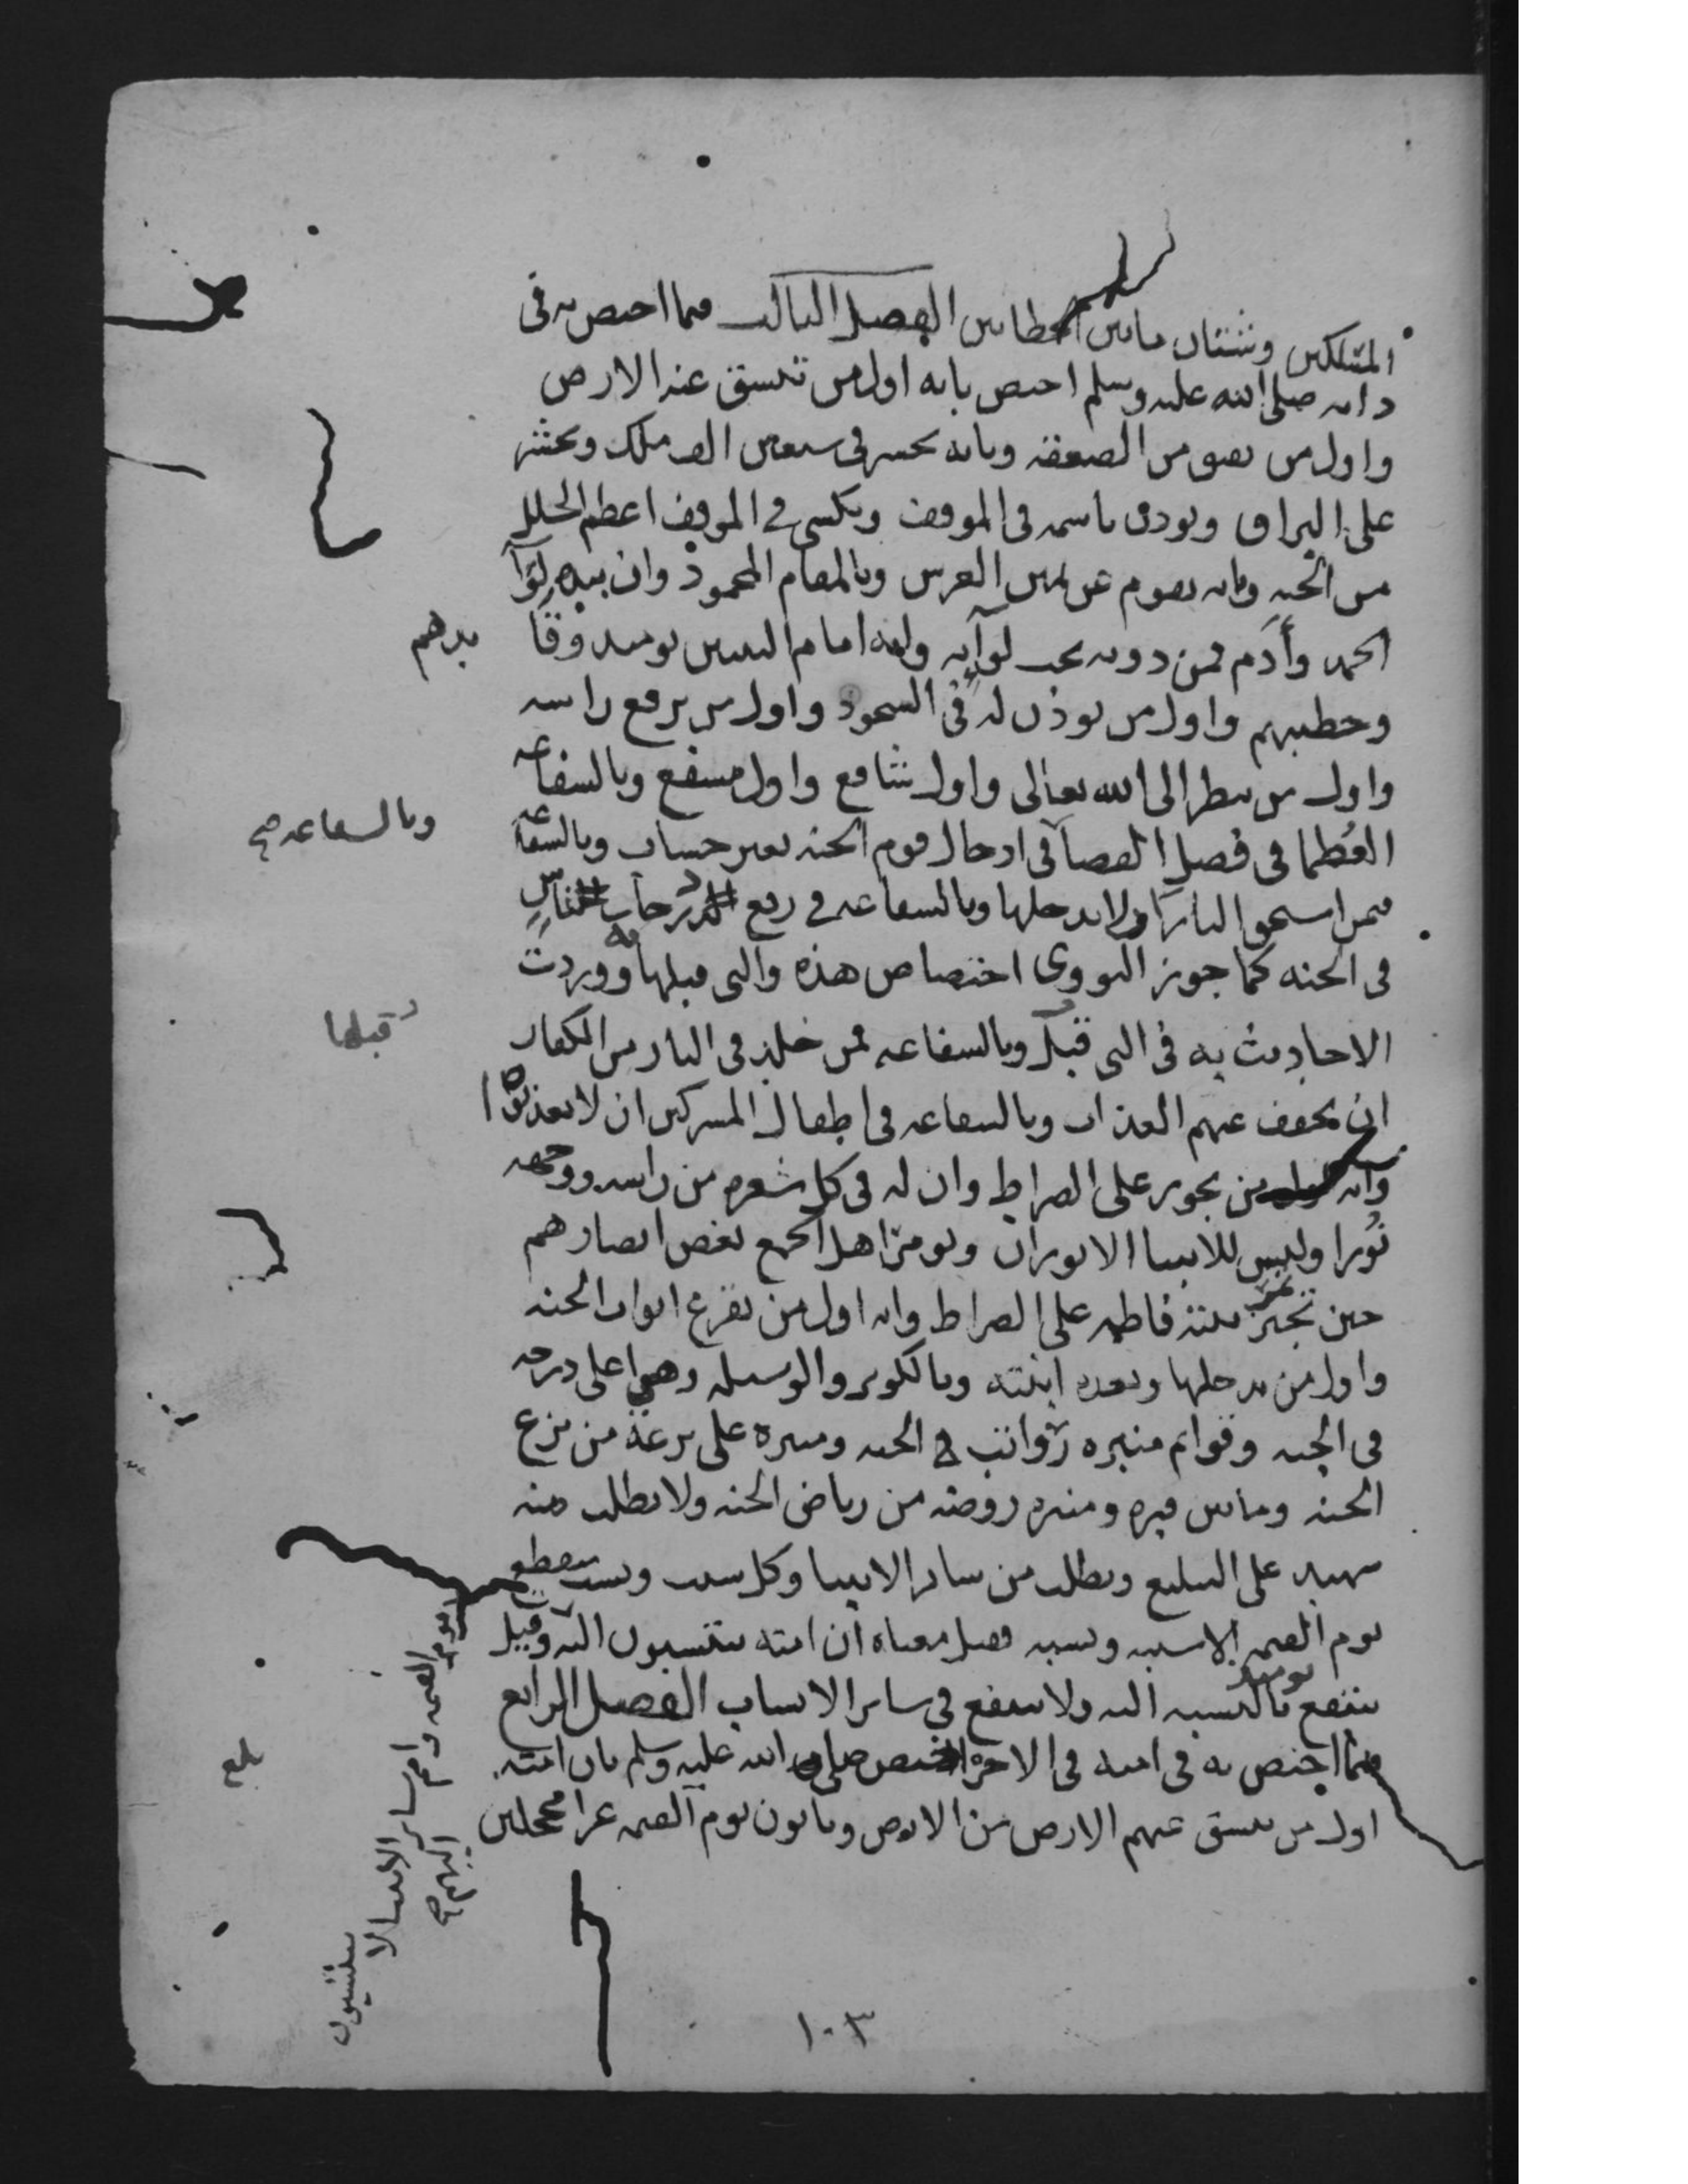 المتملكين وشتان ما بين الخطابين الفصل الثالث فيما اختص به في
ذاته صلى الله عليه وسلم اختص بانه اول من تنشق عنه الارض
واول من يفيق من الصعقة وبانه يحشر في سبعين الف ملك ويحشر
على البراق ويوذن باسمه في الموقف ويكسى في الموقف اعظم الحلل
من الجنه وبانه يقوم عن يمين العرش وبالمقام المحمود وان بيده لوآ
الحمد وآدم فمن دونه تحت لوآيه وانه امام النبيين يوميد وقا يدهم
وخطيبهم واول من يوذن له في السجود واول من يرفع راسه
واول من ينظر الى الله تعالى واول شافع واول مشفع وبالشفاعه
العُظما في فصل القضآ في ادخال قوم الجنه بغير حساب وبالشفاعه
وبالشفاعه صح
فيمن استحق النار ان لا يدخلها وبالشفاعه في رفع درجات ناس
في الجنه كما جوز النووى اختصاص هذه والتي قبلها به ووردت
الاحاديث به في التي قبل وبالشفاعه فمن خلد في النار من الكفار
قبلها
ان يخفف عنهم العذاب وبالشفاعه في اطفال المشركين ان لا يعذبوا
وانه اول من يجوز على الصراط وان له في كل شعرة من راسه ووجهه
نُورا وليس للانبيا الا نوران ويومر اهل الجمع بغض ابصارهم
حين تمر بنته فاطمه على الصراط وانه اول من يقرع ابواب الجنه
واول من يدخلها وبعده ابنته وبالكوثر والوسيله وهي اعلى درجه
في الجنه وقوائم منبره رواتب في الجنه ومنبره على ترعة من ترع
الجنه وما بين قبره ومنبره روضه من رياض الجنه ولا يطلب منه
شهيد على التبليغ ويطلب من ساير الانبيا وكل سبب ونسب منقطع
يوم القيمه الا سببه ونسبه فقيل معناه ان امته ينتسبون اليه وقيل
يوم القيمه وامم ساير الانبيا لا ينتسبون اليهم صح
ينتفع يوميد بالنسبه اليه ولا ينتفع في ساير الانساب الفصل الرابع
بلغ
فيما اختص به في امته في الاخرة اختص صلى الله عليه وسلم بان امته
اول من تنشق عنهم الارض من الامم وياتون يوم القيمه غرا محجلين
١٠٣